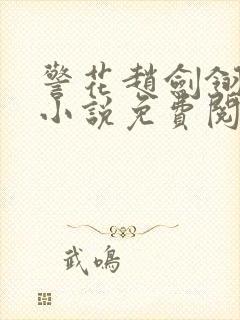 警花趙劍翎
小說免費閱
武鳴